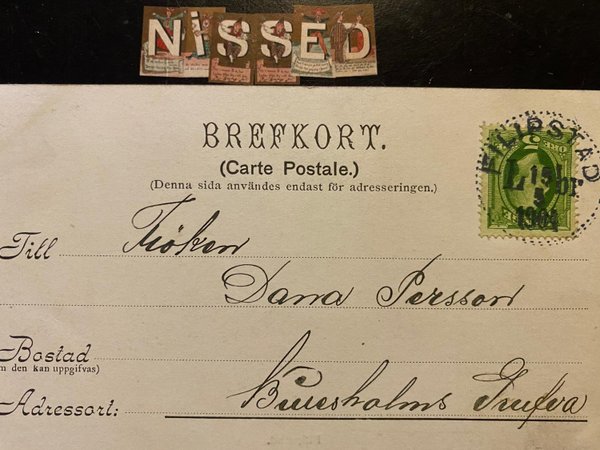 NiSSED
BREFKORT.
(Carte Postale.)
(Denna sida användes endast för adresseringen.)
FILIPSTAD
15
3
1901
Till Fröken
Dana Persson
Bostad
m den kan uppgifvas)
Adressort: